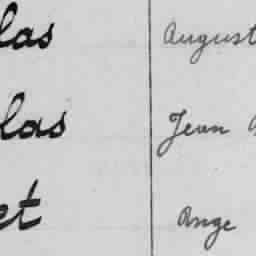 las August
las Jean
et Ange